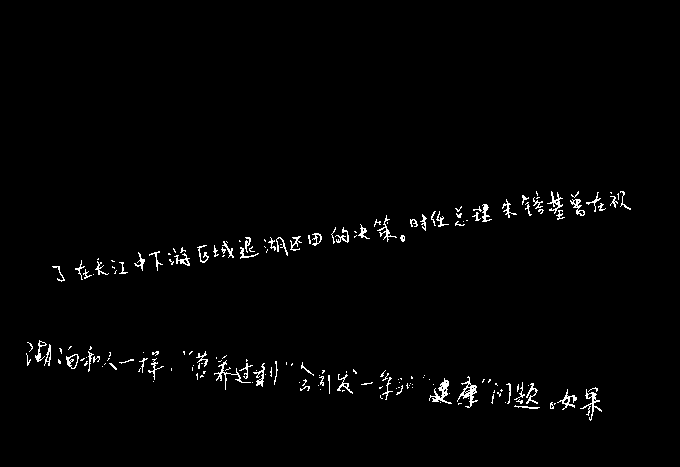 了在长江中下游区域退湖还田的决策。时任总理朱镕基曾在视
湖泊和人一样，“营养过剩”会引发一系列“健康”问题。如果